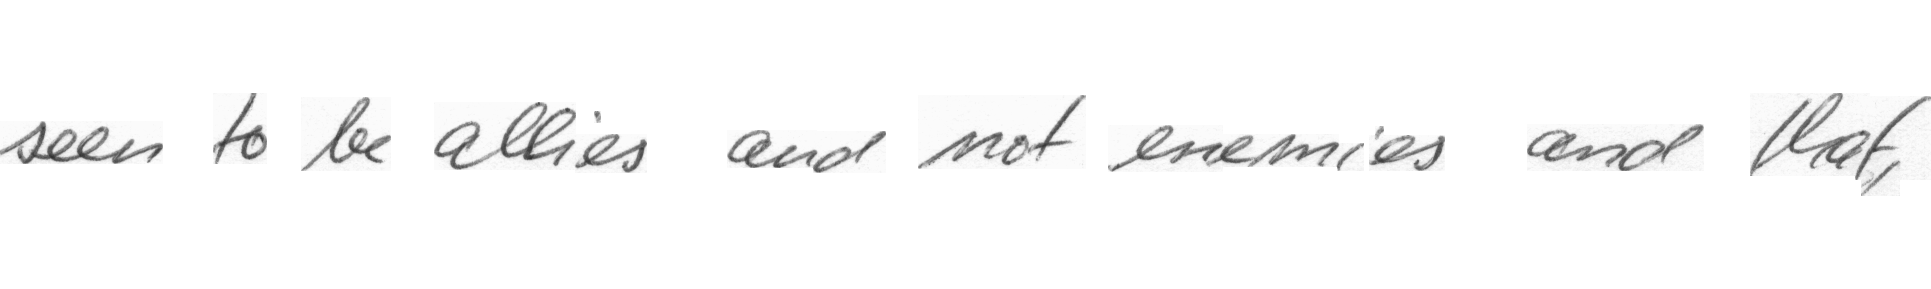 seen to be allies and not enemies and that,